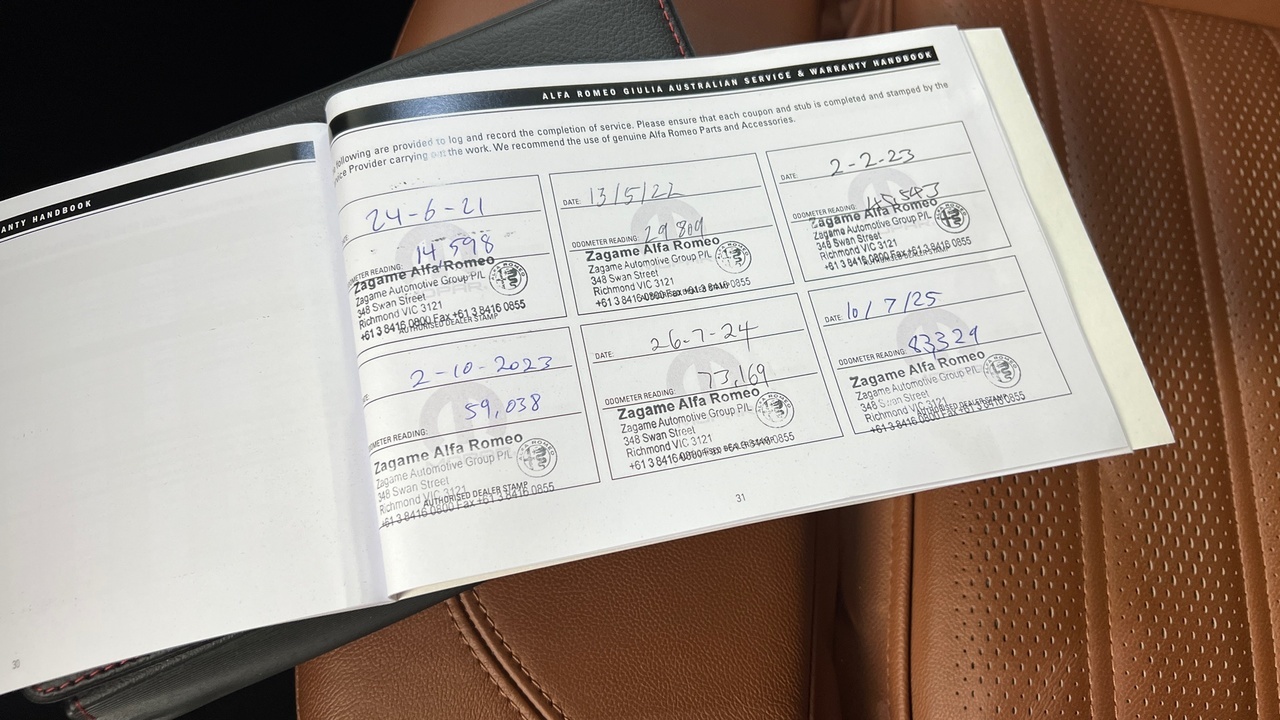 ANTY HANDBOOK
30
ALFA ROMEO GIULIA AUSTRALIAN SERVICE & WARRANTY HANDBOOK
following are provided to log and record the completion of service. Please ensure that each coupon and stub is completed and stamped by the
ice Provider carrying out the work. We recommend the use of genuine Alfa Romeo Parts and Accessories.
24-6-21
METER READING: 14,598
Zagame Alfa Romeo
Zagame Automotive Group P/L
348 Swan Street
Richmond VIC 3121
+61 3 8416 0800 Fax +61 3 8416 0855
AUTHORISED DEALER STAMP
DATE: 13/5/22
ODOMETER READING: 29,809
Zagame Alfa Romeo
Zagame Automotive Group P/L
348 Swan Street
Richmond VIC 3121
+61 3 8416 0800 Fax +61 3 8416 0855
DATE: 2-2-23
ODOMETER READING:
Zagame Alfa Romeo
Zagame Automotive Group P/L
348 Swan Street
Richmond VIC 3121
+61 3 8416 0800 Fax +61 3 8416 0855
2-10-2023
59,038
METER READING:
Zagame Alfa Romeo
Zagame Automotive Group P/L
348 Swan Street
Richmond VIC 3121
AUTHORISED DEALER STAMP
+61 3 8416 0800 Fax +61 3 8416 0855
DATE: 26-7-24
ODOMETER READING: 73,169
Zagame Alfa Romeo
Zagame Automotive Group P/L
348 Swan Street
Richmond VIC 3121
+61 3 8416 0800 Fax +61 3 8416 0855
DATE: 10/7/25
ODOMETER READING: 83329
Zagame Alfa Romeo
Zagame Automotive Group P/L
348 Swan Street
Richmond VIC 3121
AUTHORISED DEALER STAMP
+61 3 8416 0800 Fax +61 3 8416 0855
31